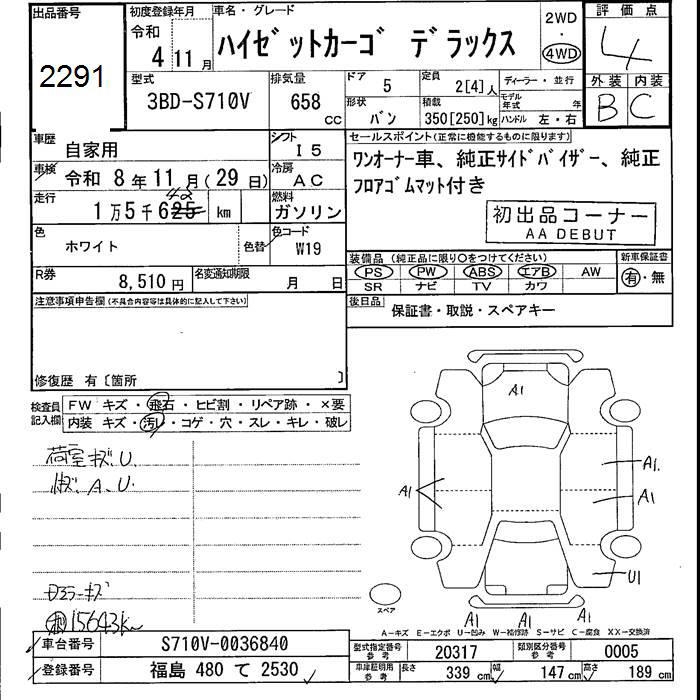 出品番号
2291
初度登録年月
令和
4 11 月
車名・グレード
ハイゼットカーゴ デラックス
2WD
・
4WD
評価点
4
外装 内装
B C
型式
3BD-S710V
排気量
658 cc
ドア 5
形状 バン
定員 2[4]人
積載 350[250]kg
ディーラー・並行
モデル年式 年
ハンドル 左・右
車歴 自家用
シフト I5
車検 令和 8年11月(29日)
冷房 AC
走行 1万5千625 km
燃料 ガソリン
色 ホワイト
色替
色コード W19
R券 8,510円
名変通知期限 月 日
セールスポイント(正常に機能するものに限ります)
ワンオーナー車、純正サイドバイザー、純正
フロアゴムマット付き
初出品コーナー
AA DEBUT
装備品(純正品に限り○をつけてください)
PS PW ABS エアB AW
SR ナビ TV カワ
新車保証書
有・無
後日品
保証書・取説・スペアキー
注意事項申告欄(不具合内容等は具体的に記入して下さい)
修復歴 有〔箇所 〕
検査員記入欄
FW キズ・飛石・ヒビ割・リペア跡・×要
内装 キズ・汚レ・コゲ・穴・スレ・キレ・破レ
荷室キズ.U.
A.U.
キズ
15643km
A1
A1
A1.
A1
U1
A1
A1
A1
スペア
A-キズ E-エクボ U-凹み W-補修跡 S-サビ C-腐食 XX-交換済
車台番号 S710V-0036840
登録番号 福島 480 て 2530
型式指定番号 参考 20317
類別区分番号 参考 0005
車庫証明用 参考 長さ 339 cm 幅 147 cm 高さ 189 cm